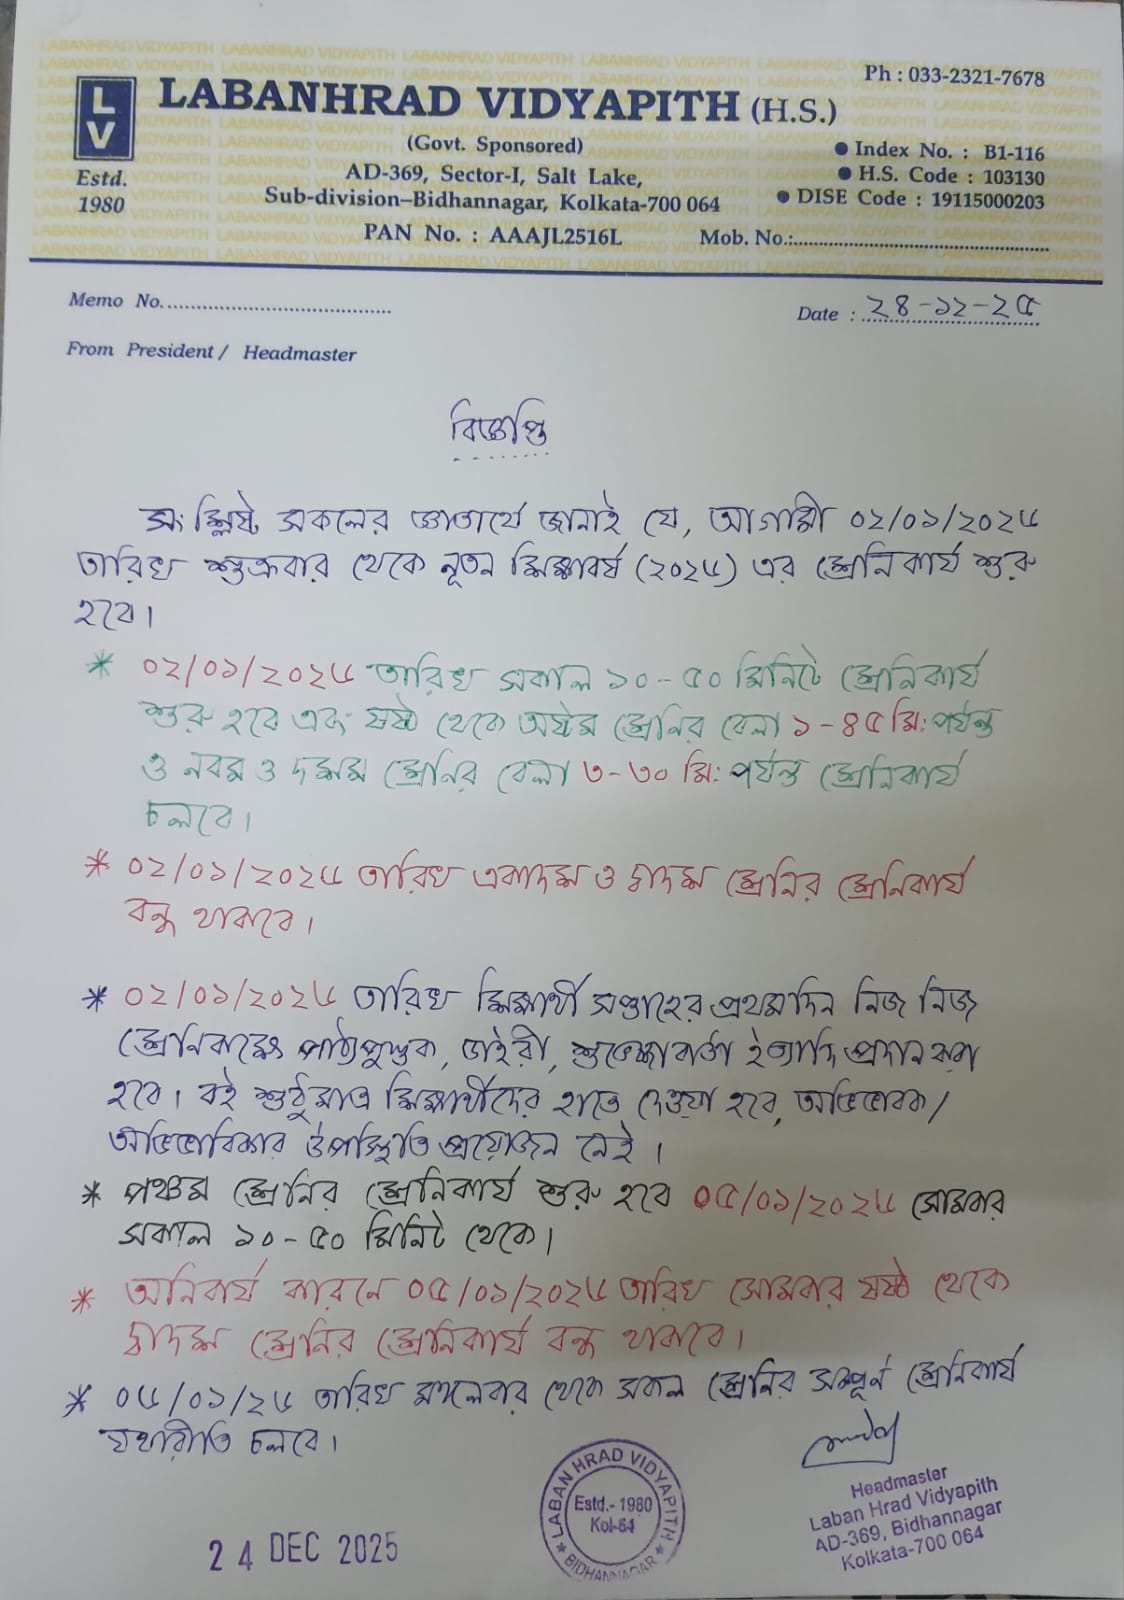 LABANHRAD VIDYAPITH (H.S.)
Ph : 033-2321-7678
LV
Estd.
1980
(Govt. Sponsored)
AD-369, Sector-I, Salt Lake,
Sub-division–Bidhannagar, Kolkata-700 064
PAN No. : AAAJL2516L
● Index No. : B1-116
● H.S. Code : 103130
● DISE Code : 19115000203
Mob. No.:
Memo No.
Date : ২৪-১২-২৫
From President / Headmaster
বিজ্ঞপ্তি
সংশ্লিষ্ট সকলের জ্ঞাতার্থে জানাই যে, আগামী ০২/০১/২০২৬
তারিখ শুক্রবার থেকে নূতন শিক্ষাবর্ষ (২০২৬) এর শ্রেনিকার্য শুরু
হবে।
* ০২/০১/২০২৬ তারিখ সকাল ১০-৫০ মিনিটে শ্রেনিকার্য
শুরু হবে এবং ষষ্ঠ থেকে অষ্টম শ্রেনির বেলা ১-৪৫ মি: পর্যন্ত
ও নবম ও দশম শ্রেনির বেলা ৩-৩০ মি: পর্যন্ত শ্রেনিকার্য
চলবে।
* ০২/০১/২০২৬ তারিখ একাদশ ও দ্বাদশ শ্রেনির শ্রেনিকার্য
বন্ধ থাকবে।
* ০২/০১/২০২৬ তারিখ শিক্ষার্থী সপ্তাহের প্রথমদিন নিজ নিজ
শ্রেনিকক্ষে পাঠ্যপুস্তক, ডাইরী, শুভেচ্ছাবার্তা ইত্যাদি প্রদান করা
হবে। বই শুধুমাত্র শিক্ষার্থীদের হাতে দেওয়া হবে, অভিভাবক/
অভিভাবিকার উপস্থিতি প্রয়োজন নেই।
* পঞ্চম শ্রেনির শ্রেনিকার্য শুরু হবে ০৫/০১/২০২৬ সোমবার
সকাল ১০-৫০ মিনিট থেকে।
* অনিবার্য কারনে ০৫/০১/২০২৬ তারিখ সোমবার ষষ্ঠ থেকে
দ্বাদশ শ্রেনির শ্রেনিকার্য বন্ধ থাকবে।
* ০৬/০১/২৬ তারিখ মঙ্গলবার থেকে সকল শ্রেনির সম্পূর্ন শ্রেনিকার্য
যথারীতি চলবে।
LABAN HRAD VIDYAPITH
Estd.- 1980
Kol-64
* BIDHANNAGAR *
Headmaster
Laban Hrad Vidyapith
AD-369, Bidhannagar
Kolkata-700 064
24 DEC 2025